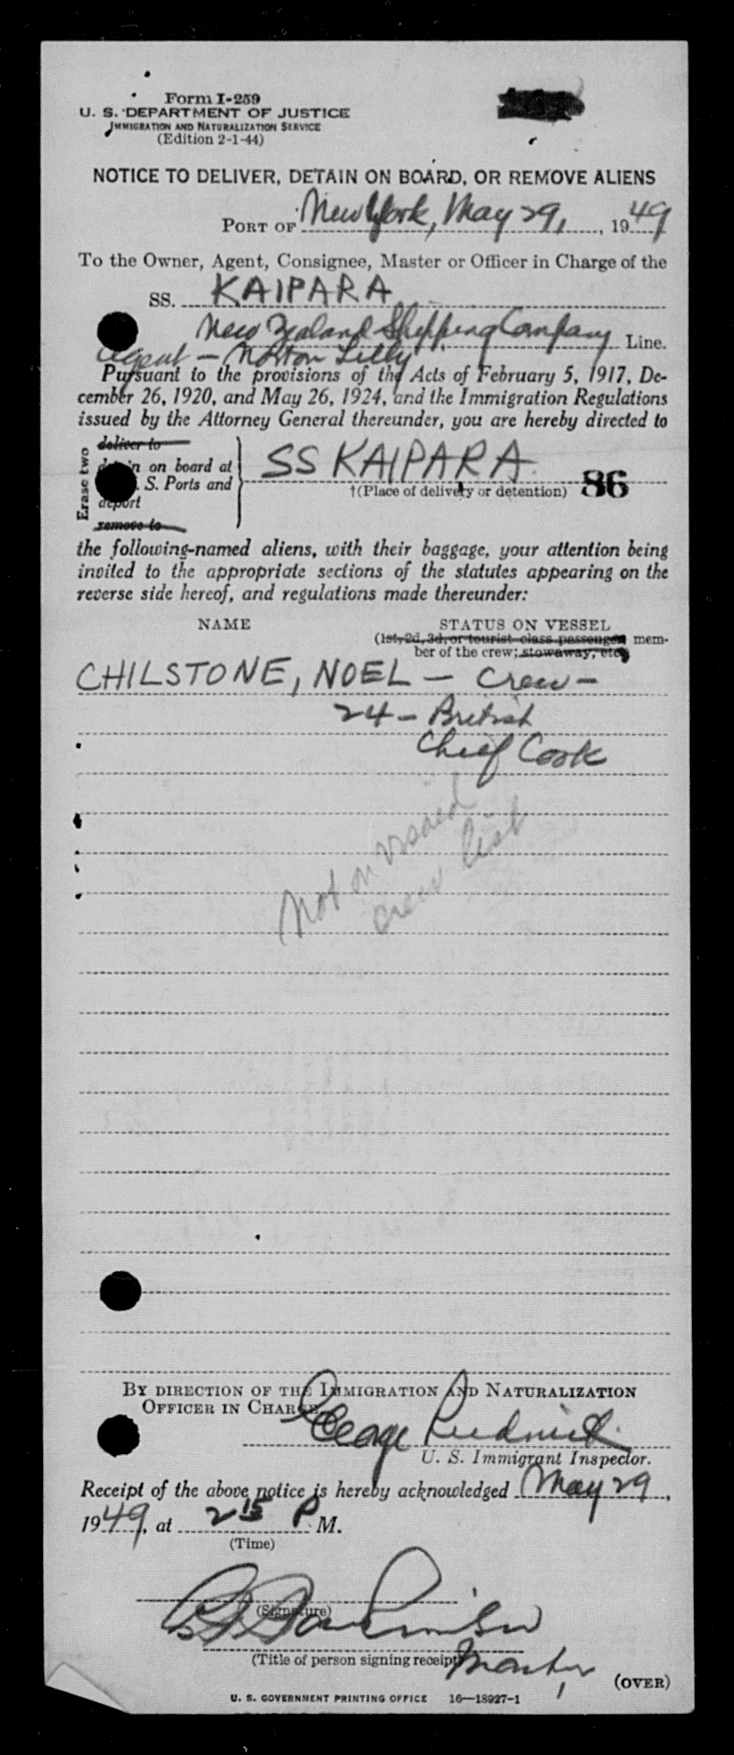 Form I-259
U. S. DEPARTMENT OF JUSTICE
IMMIGRATION AND NATURALIZATION SERVICE
(Edition 2-1-44)
NOTICE TO DELIVER, DETAIN ON BOARD, OR REMOVE ALIENS
PORT OF New York, May 29, , 1949
To the Owner, Agent, Consignee, Master or Officer in Charge of the
SS. KAIPARA
New Zealand Shipping Company Line.
Agent – Norton Lilly
Pursuant to the provisions of the Acts of February 5, 1917, De-
cember 26, 1920, and May 26, 1924, and the Immigration Regulations
issued by the Attorney General thereunder, you are hereby directed to
Erase two
deliver to
on board at
S. Ports and
deport
remove to
SS KAIPARA
†(Place of delivery or detention) 86
the following-named aliens, with their baggage, your attention being
invited to the appropriate sections of the statutes appearing on the
reverse side hereof, and regulations made thereunder:
NAME STATUS ON VESSEL
(1st, 2d, 3d, or tourist class passenger mem-
ber of the crew; stowaway, etc.)
CHILSTONE, NOEL – Crew –
24 – British
Chief Cook
Not on visaed
crew list
BY DIRECTION OF THE IMMIGRATION AND NATURALIZATION
OFFICER IN CHARGE
George
U. S. Immigrant Inspector.
Receipt of the above notice is hereby acknowledged May 29,
1949, at 2 15 P M.
(Time)
(Signature)
(Title of person signing receipt) Master
(OVER)
U. S. GOVERNMENT PRINTING OFFICE 16—18927-1